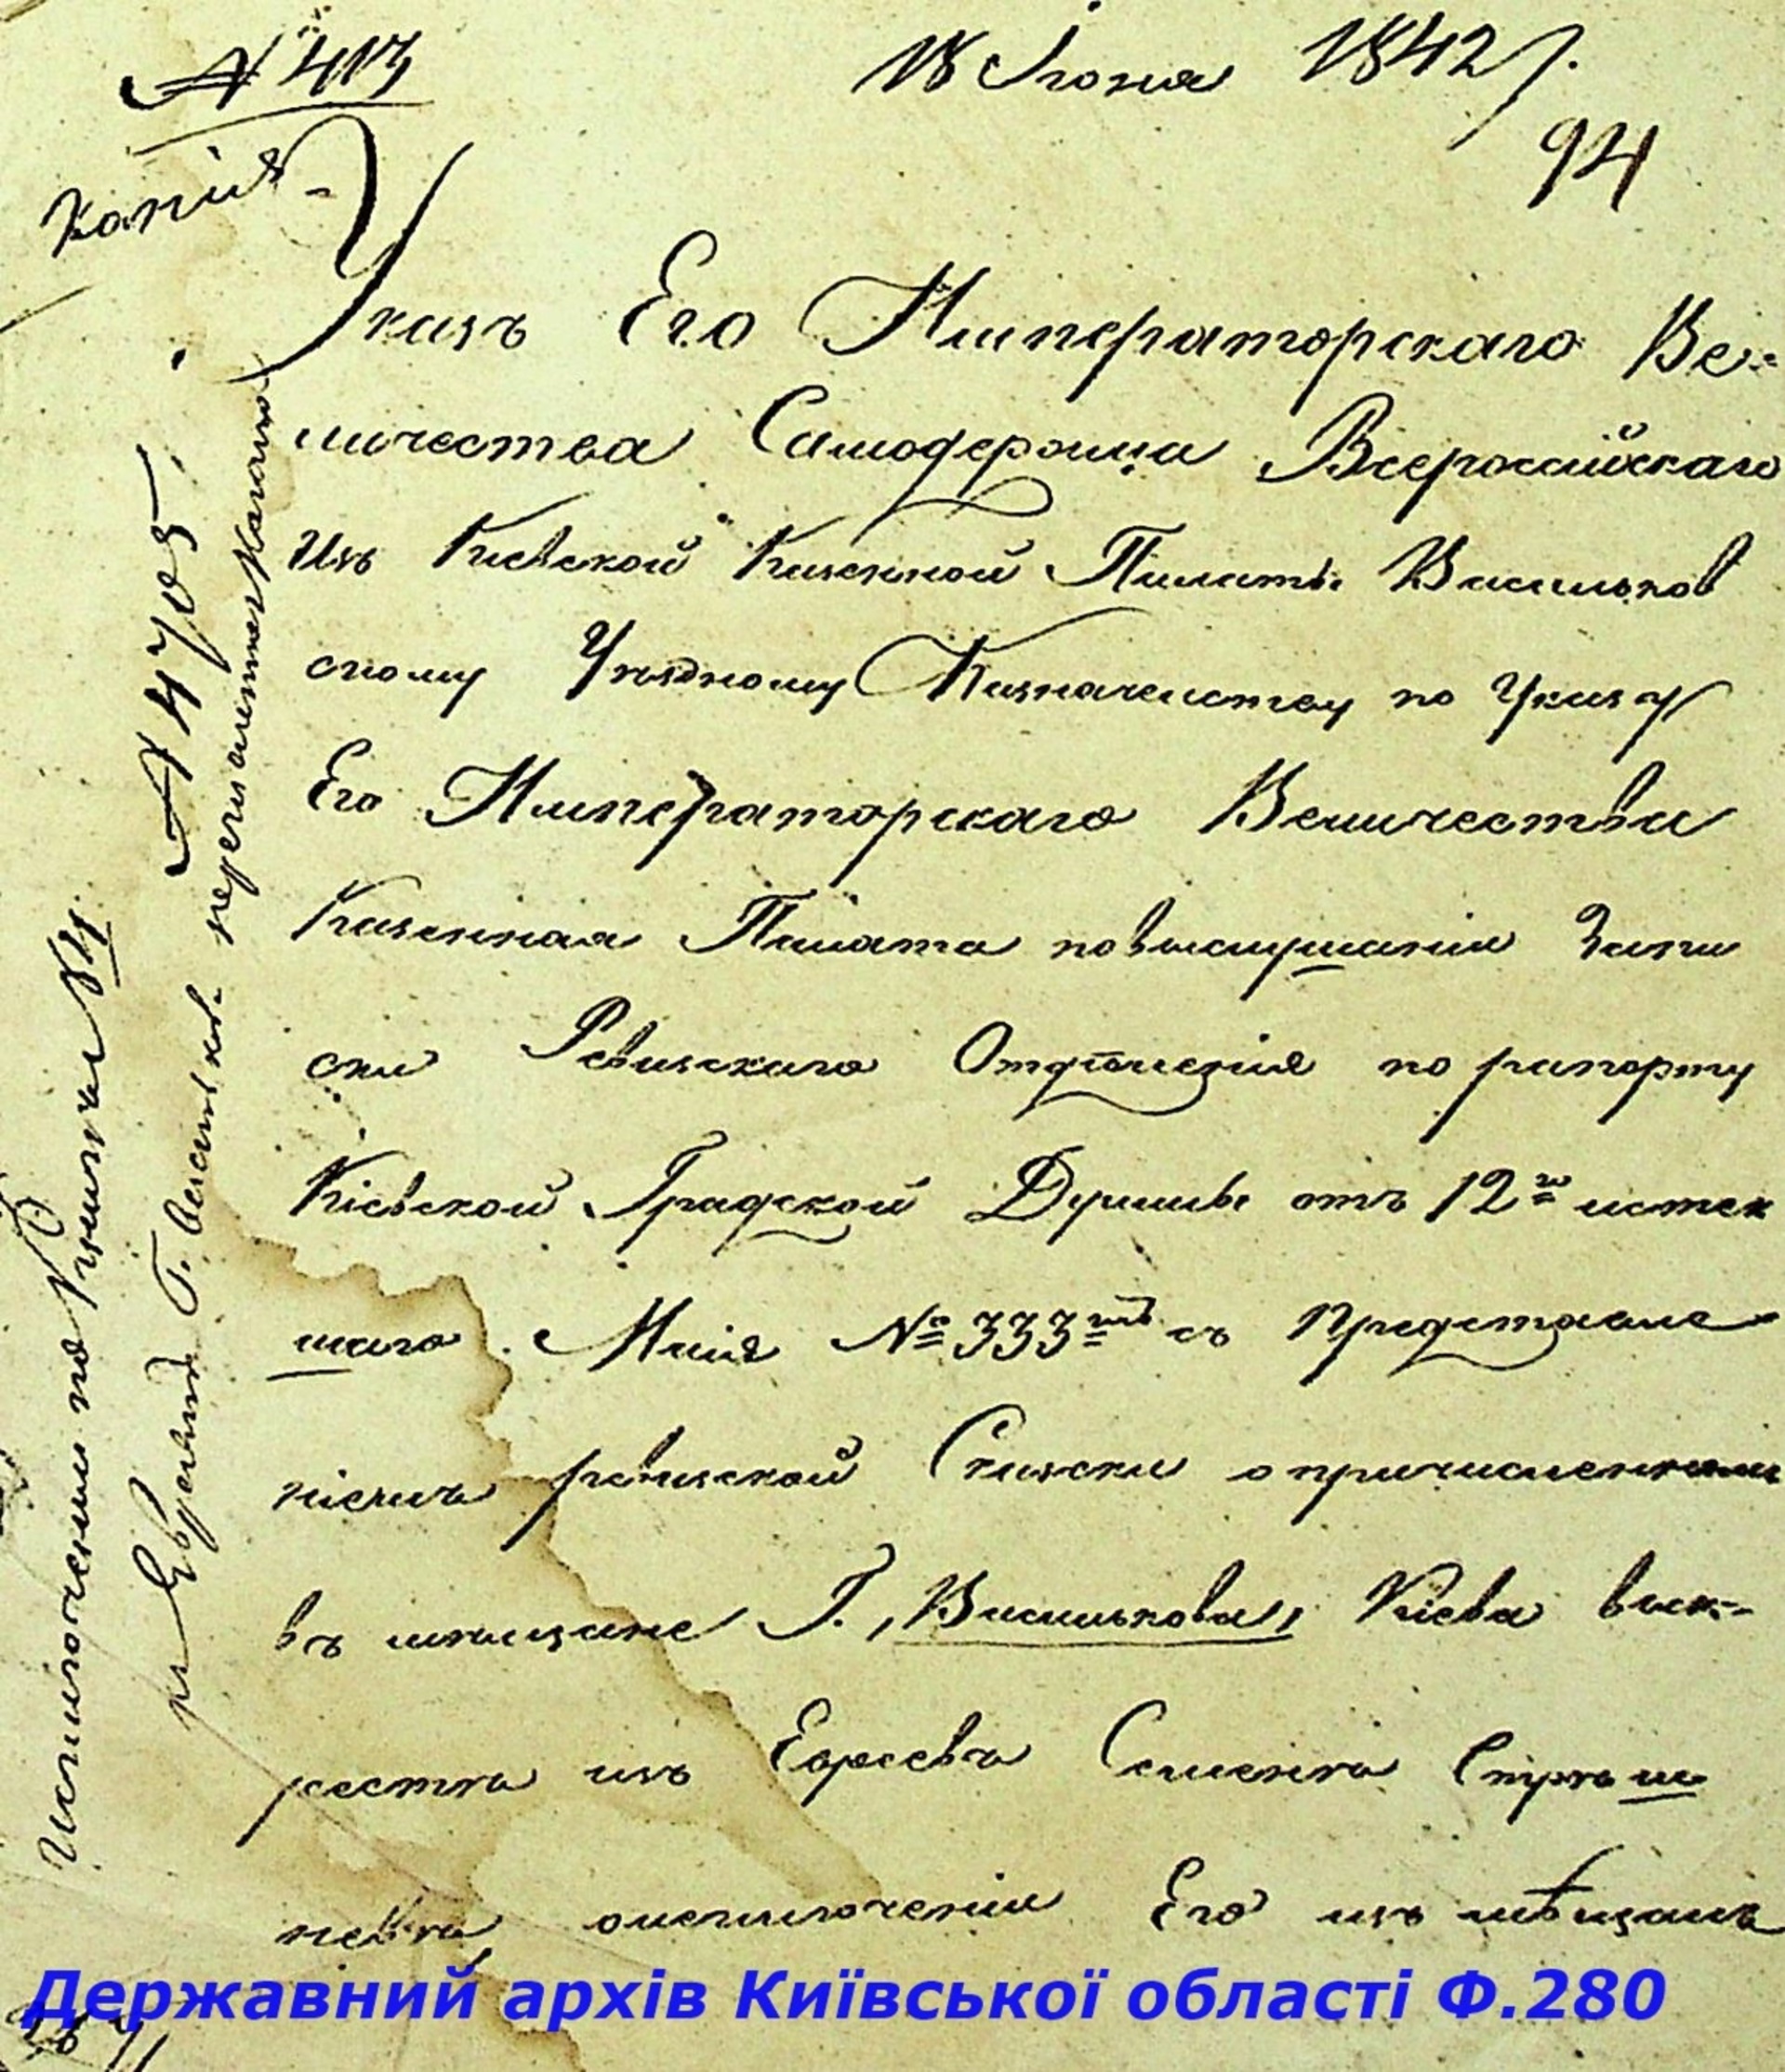 № 413
18 Іюня 1842 г.
94
Копія
Указъ Его Императорскаго Ве-
личества Самодержца Всероссійскаго
Изъ Кіевской Казенной Палаты Васильков
скому Уѣздному Казначейству по Указу
Его Императорскаго Величества
Казенная Палата повыслушаніи Запи
ски Ревизскаго Отдѣленія по рапорту
Кіевской Градской Думы отъ 12го истек
шаго Маія № 333мъ съ Представле
ніемъ ревизской Сказки о причисленномъ
въ мѣщане Г. Василькова, Кіева вык-
реста изъ Евреевъ Семена
оисключеніи Его изъ мѣщанъ
№ 4705
Исключеннымъ по
и Евреями Г. Васильков.
Державний архів Київської області Ф.280